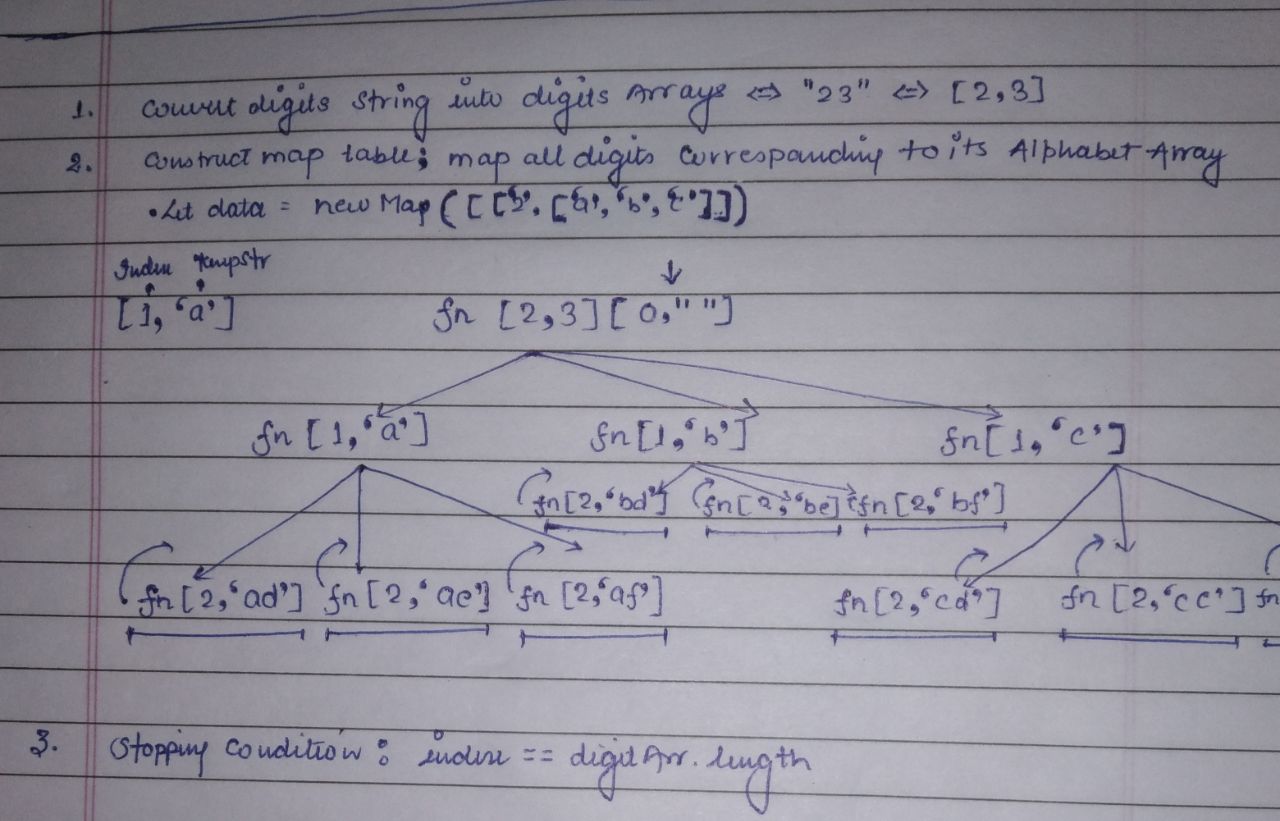 1. Convert digits string into digits Arrays <=> "23" <=> [2,3]
2. Construct map table; map all digits Correspanding to its Alphabet Array
• Let data = new Map ([['2', ['a', 'b', 'c']]])
Index tempstr
[1, 'a'] fn [2,3] [0, " "]
fn [1, 'a'] fn [1, 'b'] fn [1, 'c']
fn [2, 'bd'] fn [2, 'be'] fn [2, 'bf']
fn [2, 'ad'] fn [2, 'ae'] fn [2, 'af'] fn [2, 'cd'] fn [2, 'ce'] fn
3. Stopping condition : index == digitArr. length